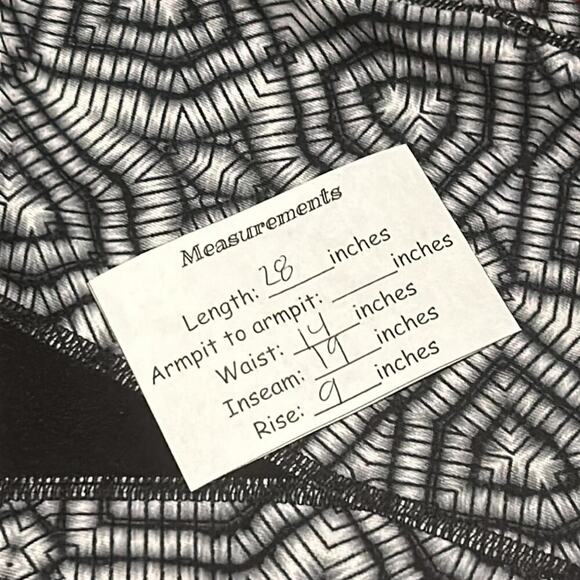 Measurements
Length: 28 inches
Armpit to armpit: ______ inches
Waist: 14 inches
Inseam: 19 inches
Rise: 9 inches